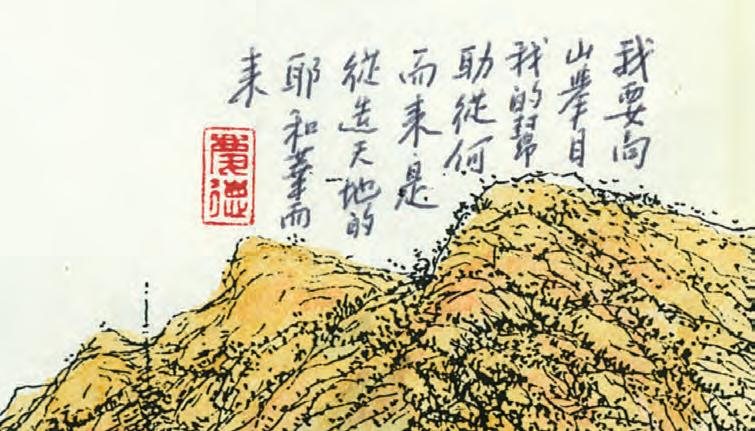 我要向
山舉目
我的幫
助從何
而来是
從造天地的
耶和華而
来
慶德